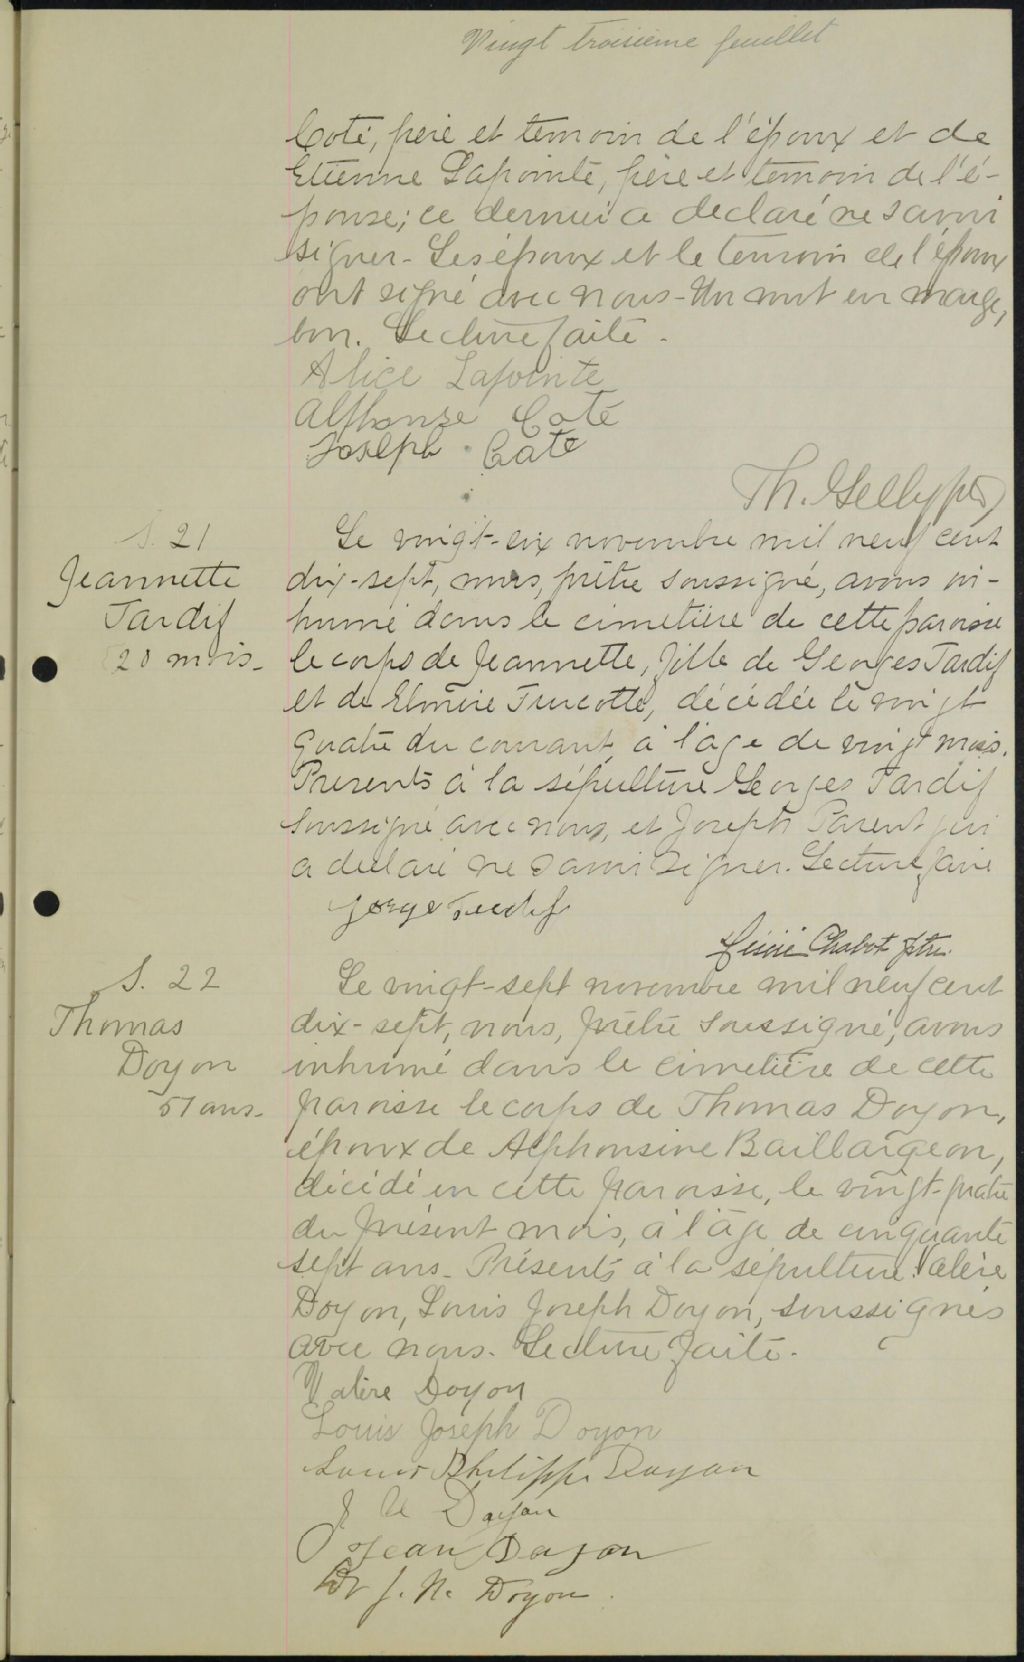 Vingt troisième feuillet
Coté, père et temoin de l'époux et de
Etienne Lapointe, père et temoin de l'é-
pouse; ce dernier a declaré ne savoir
signer - Les époux et le temoin de l'époux
ont signé avec nous - Un mot en marge,
bon. Lecture faite.
Alice Lapointe
Alphonse Coté
Joseph Coté
Th. ptr
S. 21
Jeannette
Tardif
20 mois.
Le vingt-six novembre mil neuf cent
dix-sept, nous, prêtre soussigné, avons in-
humé dans le cimetière de cette paroisse
le corps de Jeannette, fille de Georges Tardif
et de Turcotte, décédée le vingt
quatre du courant, à l'âge de vingt mois.
Presents à la sépulture Georges Tardif
soussigné avec nous, et Joseph Parent qui
a declaré ne savoir signer. Lecture faite
Chabot Ptre.
S. 22
Thomas
Doyon
57 ans.
Le vingt-sept novembre mil neuf cent
dix-sept, nous, prêtre soussigné, avons
inhumé dans le cimetière de cette
paroisse le corps de Thomas Doyon,
époux de Alphonsine Baillargeon,
décédé en cette paroisse, le vingt-quatre
du présent mois, à l'âge de cinquante
sept ans. Présents à la sépulture: Valère
Doyon, Louis Joseph Doyon, soussignés
avec nous. Lecture faite.
Valère Doyon
Louis Joseph Doyon
Louis Philippe Doyon
J U Doyon
Jean Doyon
Dr J. N. Doyon.